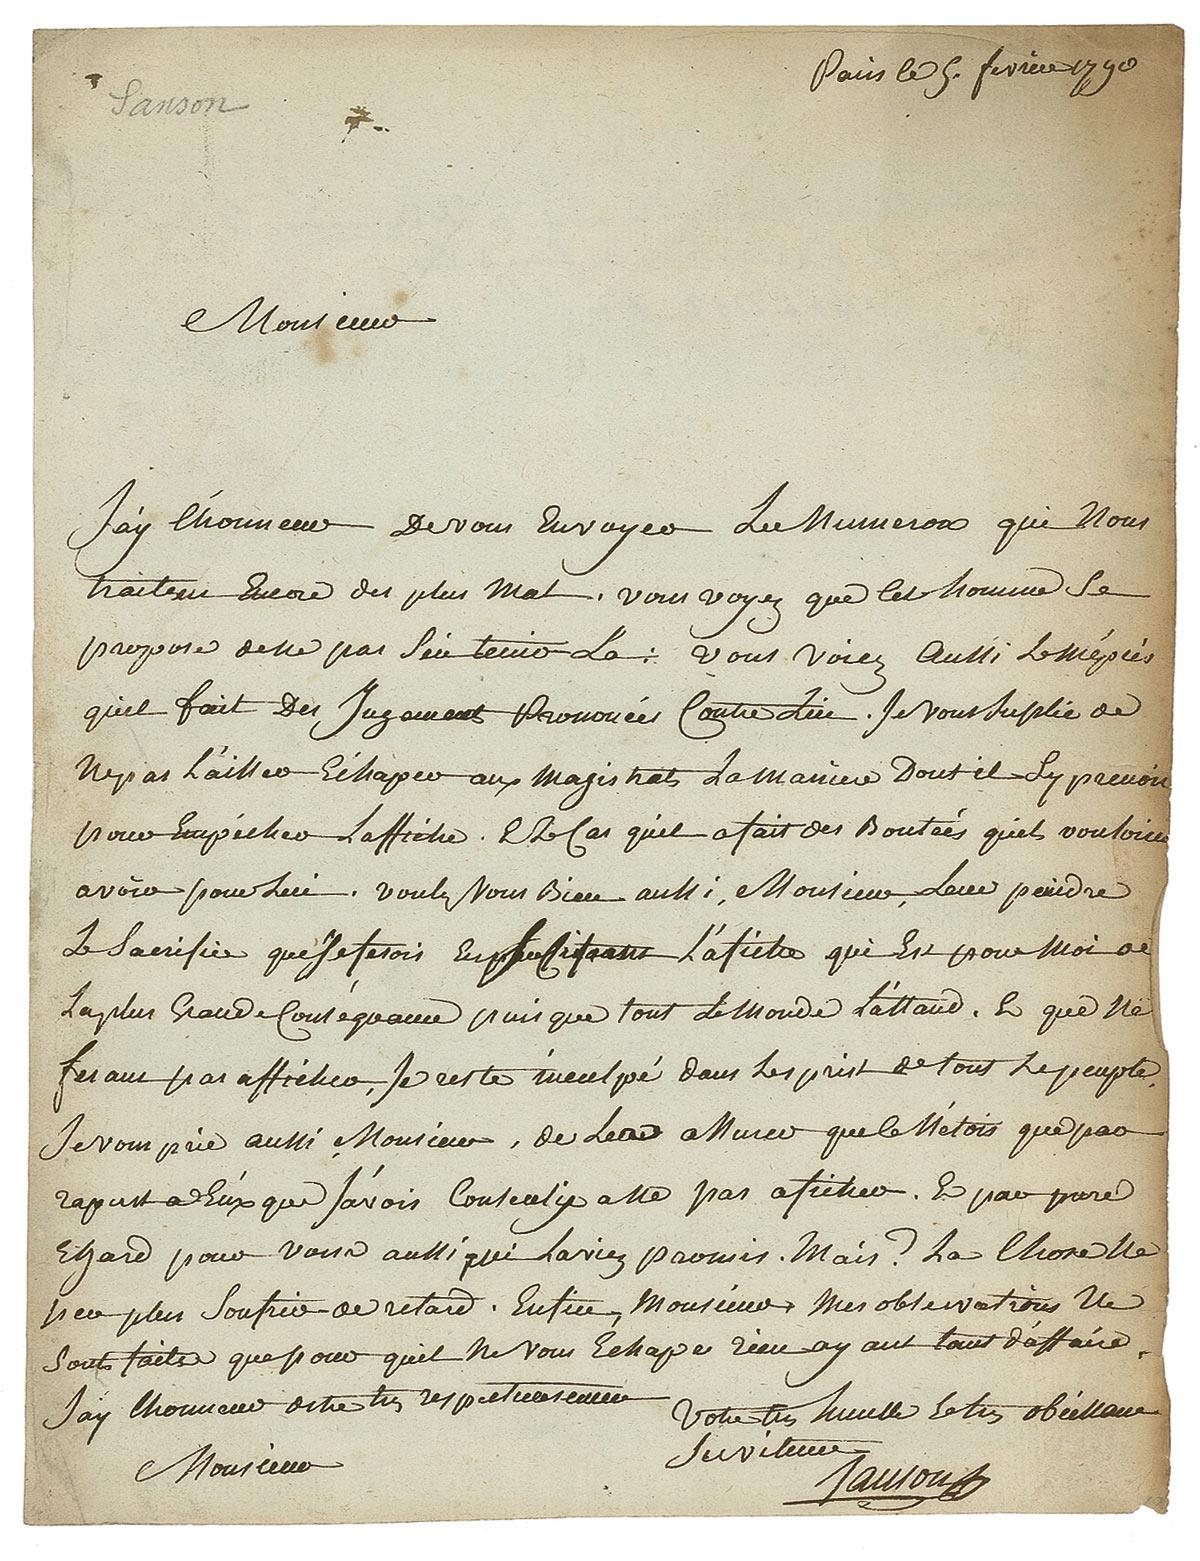 Paris le 5. fevrier 1790
Sanson
Monsieur
J'ay l'honneur De vous Envoyer Les Numerox qui Nous
traitens Encore des plus Mal. vous voyez que Cet homme Se
propose de ne pas S'en tenir La: vous voiez Aussi Le Mépris
quil fait Des Jugements Prononcés Contre Lui. Je vous Suplie de
Ne pas Laisser Echaper aux Magistrats La Maniere Dont il Sy prenoit
pour Empécher L'affiche. Et Le Cas quil a fait des Bontées quils vouloient
avoir pour Lui. voulez Vous Bien aussi, Monsieur, Leur peindre
Le Sacrifice que Je ferois En L'afiche qui Est pour Moi de
La plus Grande Conséquance puis que tout Le Monde L'attand. Et que Ne
fesant pas afficher, Je reste inculpé dans Lesprit de tout Le peuple.
Je vous prie aussi Monsieur, de Leur assurer que Ce N'étois que par
raport a Eux que J'avois Consenti a Ne pas aficher. Et par pure
Egard pour vous aussi qui Laviez promis. Mais? La Chose Ne
peu plus Soufrir de retard. Enfin, Monsieur, Mes observations Ne
Sont faite que pour quil Ne Vous Echape rien ayant tant d'affaire.
J'ay l'honneur detre tres respectueusement
Votre tres humble Et tres obéissant
Serviteur
Monsieur
Sanson